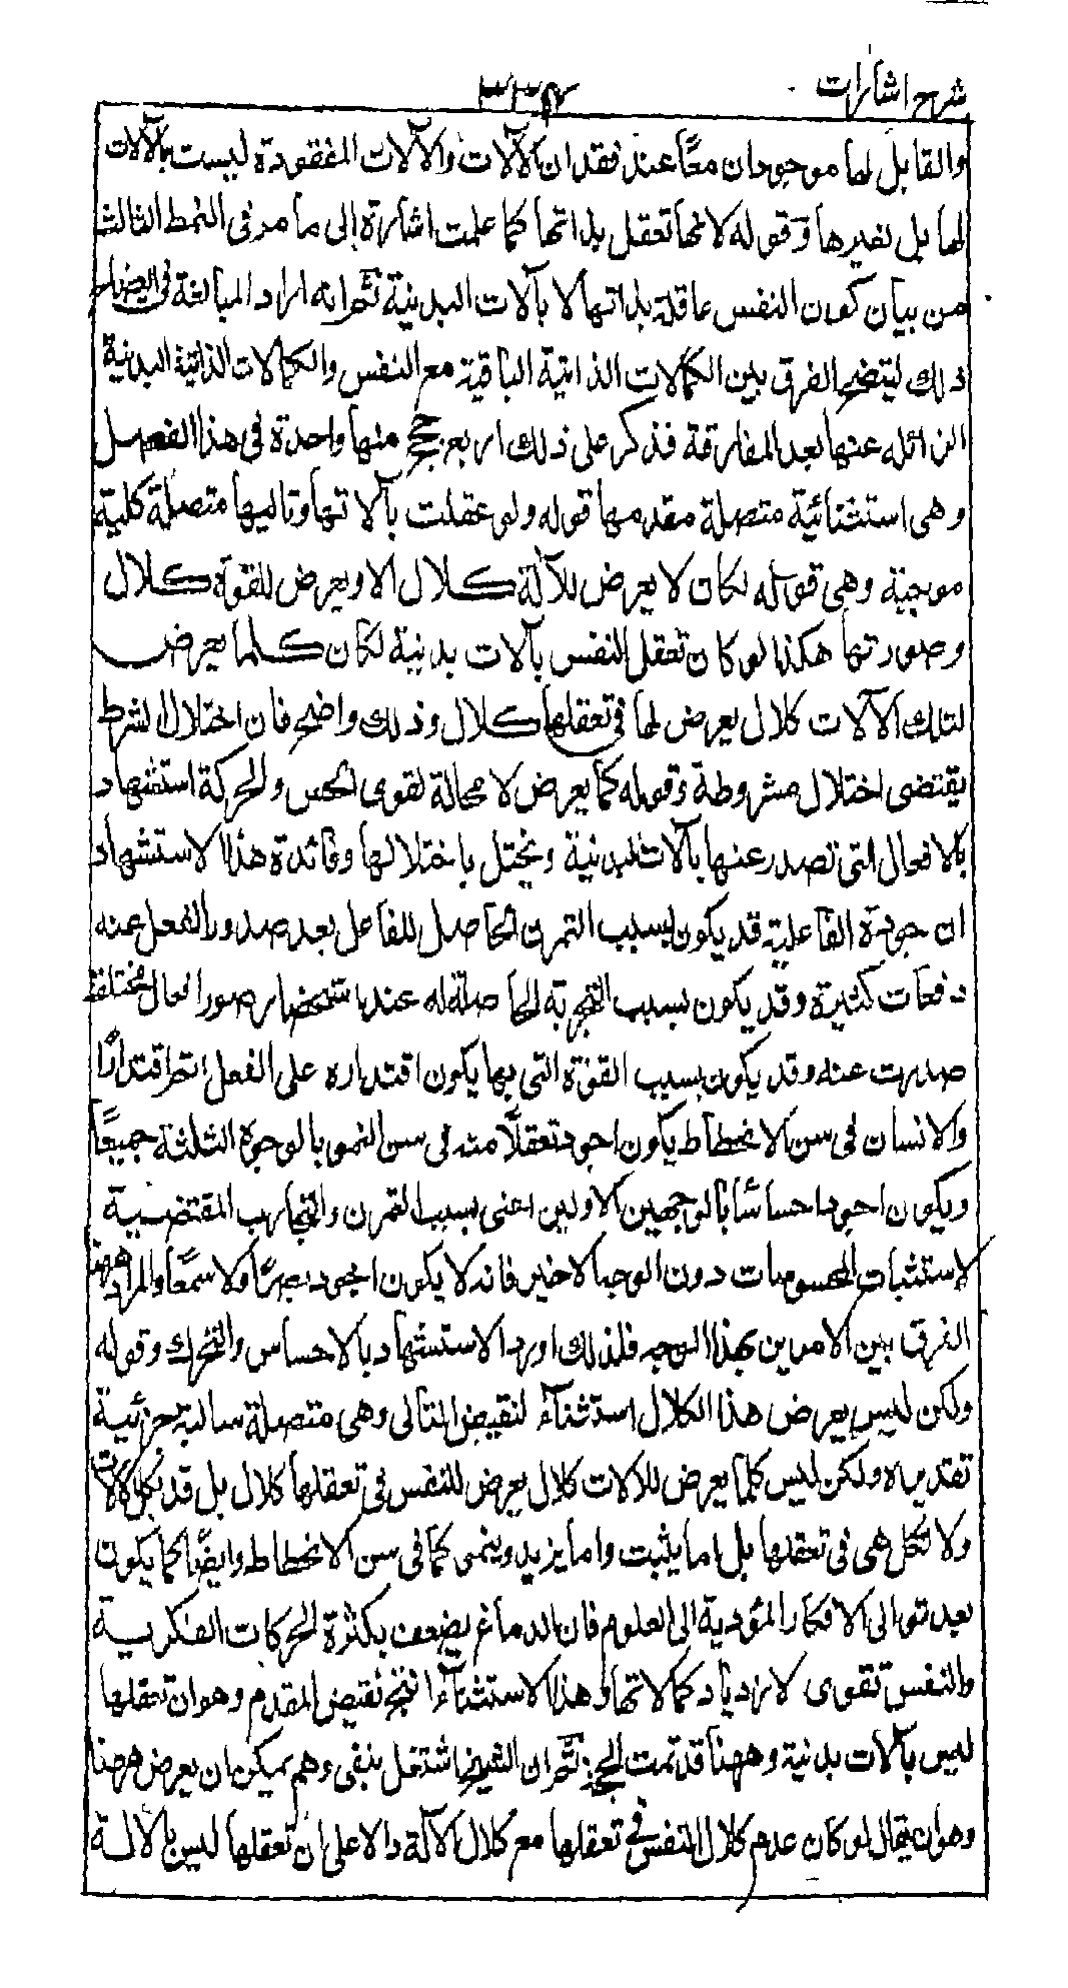 شرح اشارات
۳۳۴
والقابل لها موجودان معًا عند فقدان الآلات والآلات المفقودة ليست بآلات
لها بل لغيرها وقوله لانها تعقل بذاتها كما علمت اشارة إلى ما مر فى النمط الثالث
من بيان كون النفس عاقلة بذاتها لا بآلات البدنية ثم انه اراد المبالغة فى ايضاح
ذلك ليتضح الفرق بين الكمالات الذاتية الباقية مع النفس والكمالات الذاتية البدنية
الزائله عنها بعد المفارقة فذكر على ذلك اربع حجج منها واحدة فى هذا الفصل
وهى استثنائية متصلة مقدمها قوله ولو عقلت بآلاتها وتاليها متصلة كلية
موجبة وهى قوله لكان لا يعرض للآلة كلال الا ويعرض للقوة كلال
وصورتها هكذا لو كان تعقل النفس بآلات بدنية لكان كلما يعرض
لتلك الآلات كلال يعرض لها فى تعقلها كلال وذلك واضح فان اختلال الشرط
يقتضى اختلال مشروطة وقوله كما يعرض لا محالة لقوى الحس والحركة استشهاد
بالافعال التى تصدر عنها بآلات البدنية ويختل باختلالها وفائدة هذا الاستشهاد
ان جودة الفاعلية قد يكون بسبب التمرن الحاصل للفاعل بعد صدور الفعل عنه
دفعات كثيرة وقد يكون بسبب التجربة الحاصلة له عند استحضار صور افعال مختلفة
صدرت عنه وقد يكون بسبب القوة التى بها يكون اقتداره على الفعل اتم اقتدارًا
والانسان فى سن الانحطاط يكون اجود تعقلًا منه فى سن النمو بالوجوه الثلثة جميعًا
ويكون اجود احساسًا بالوجهين الاولين اعنى بسبب التمرن والتجارب المقتضية
لاستثبات المحسوسات دون الوجه الاخير فانه لا يكون اجود بصرًا ولا سمعًا والمراد ههنا
الفرق بين الامرين بهذا الوجه فلذلك اورد الاستشهاد بالاحساس والتحرك وقوله
ولكن ليس يعرض هذا الكلال استثناء لنقيض التالى وهى متصلة سالبة جزئية
تقديره ولكن ليس كلما يعرض للالات كلال يعرض للنفس فى تعقلها كلال بل قد تكل الالات
ولا تكل هى فى تعقلها بل اما يثبت واما يزيد وينمى كما فى سن الانحطاط وايضًا كما يكون
بعد توالى الافكار المؤدية الى العلوم فان الدماغ يضعف بكثرة الحركات الفكرية
والنفس تقوى لازدياد كمالاتها وهذا الاستثناء انتج نقيض المقدم وهو ان تعقلها
ليس بآلات بدنية وههنا قد تمت الحجة ثم ان الشيخ اشتغل بنفى وهم يمكن ان يعرض ههنا
وهو ان يقال لو كان عدم كلال النفس فى تعقلها مع كلال الآلة دالا على ان تعقلها ليس بالالة